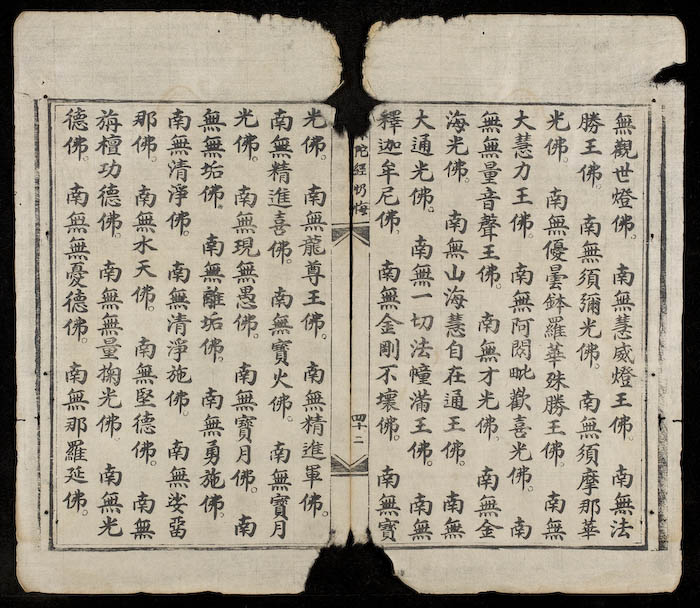 無觀世燈佛。南無慧威燈王佛。南無法
勝王佛。南無須彌光佛。南無須摩那華
光佛。南無優曇鉢羅華殊勝王佛。南無
大慧力王佛。南無阿閦毗歡喜光佛。南
無無量音聲王佛。南無才光佛。南無金
海光佛。南無山海慧自在通王佛。南無
大通光佛。南無一切法幢滿王佛。南無
釋迦牟尼佛。南無金剛不壞佛。南無寶
陀經
四十二
光佛。南無龍尊王佛。南無精進軍佛。
南無精進喜佛。南無寶火佛。南無寶月
光佛。南無現無愚佛。南無寶月佛。南
無無垢佛。南無離垢佛。南無勇施佛。
南無清淨佛。南無清淨施佛。南無娑畱
那佛。南無水天佛。南無堅德佛。南無
旃檀功德佛。南無無量掬光佛。南無光
德佛。南無無憂德佛。南無那羅延佛。